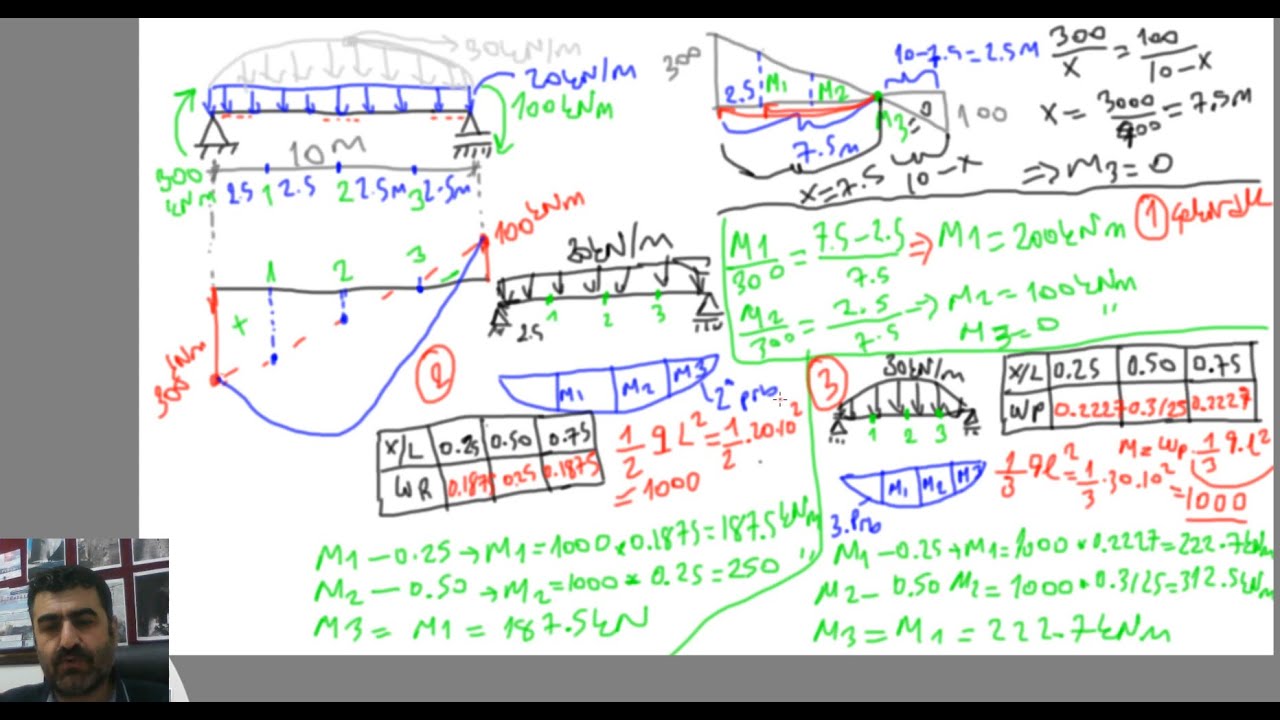 30kN/m
20kN/m
100kNm
300
kNm
10M
2.5 1 2.5 2 2.5M 3 2.5m
100kNm
1 2 3
+
300kNm
30kN/m
1 2 3
2.5
2
M1 M2 M3
2° prb
X/L 0.25 0.50 0.75
WR 0.1875 0.25 0.1875
1/2 qL² = 1/2 . 20.10²
= 1000
M1 – 0.25 → M1 = 1000 * 0.1875 = 187.5kNm
M2 – 0.50 → M2 = 1000 * 0.25 = 250 "
M3 = M1 = 187.5kN
300
2.5 M1 M2
7.5m
10-7.5=2.5M
M3=0
100
X=7.5
10-X
300/X = 100/(10-X)
X = 3000/400 = 7.5M
⇒ M3 = 0
M1/300 = (7.5-2.5)/7.5 ⇒ M1 = 200kNm
1
M2/300 = 2.5/7.5 → M2 = 100kNm
M3=0 "
3
30kN/m
1 2 3
M1 M2 M3
3.Prb
X/L 0.25 0.50 0.75
WP 0.2227 0.3125 0.2227
M = WP . 1/3 q.l²
1/3 ql² = 1/3 . 30.10²
= 1000
M1 – 0.25 → M1 = 1000 * 0.2227 = 222.7kNm
M2 – 0.50 M2 = 1000 * 0.3125 = 312.5kNm
M3 = M1 = 222.7kNm